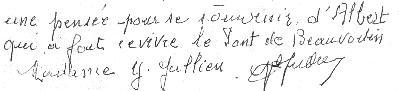 une pensée pour se souvenir d'Albert
qui a fait revivre le Pont de Beauvoisin
Madame Y. Jullien